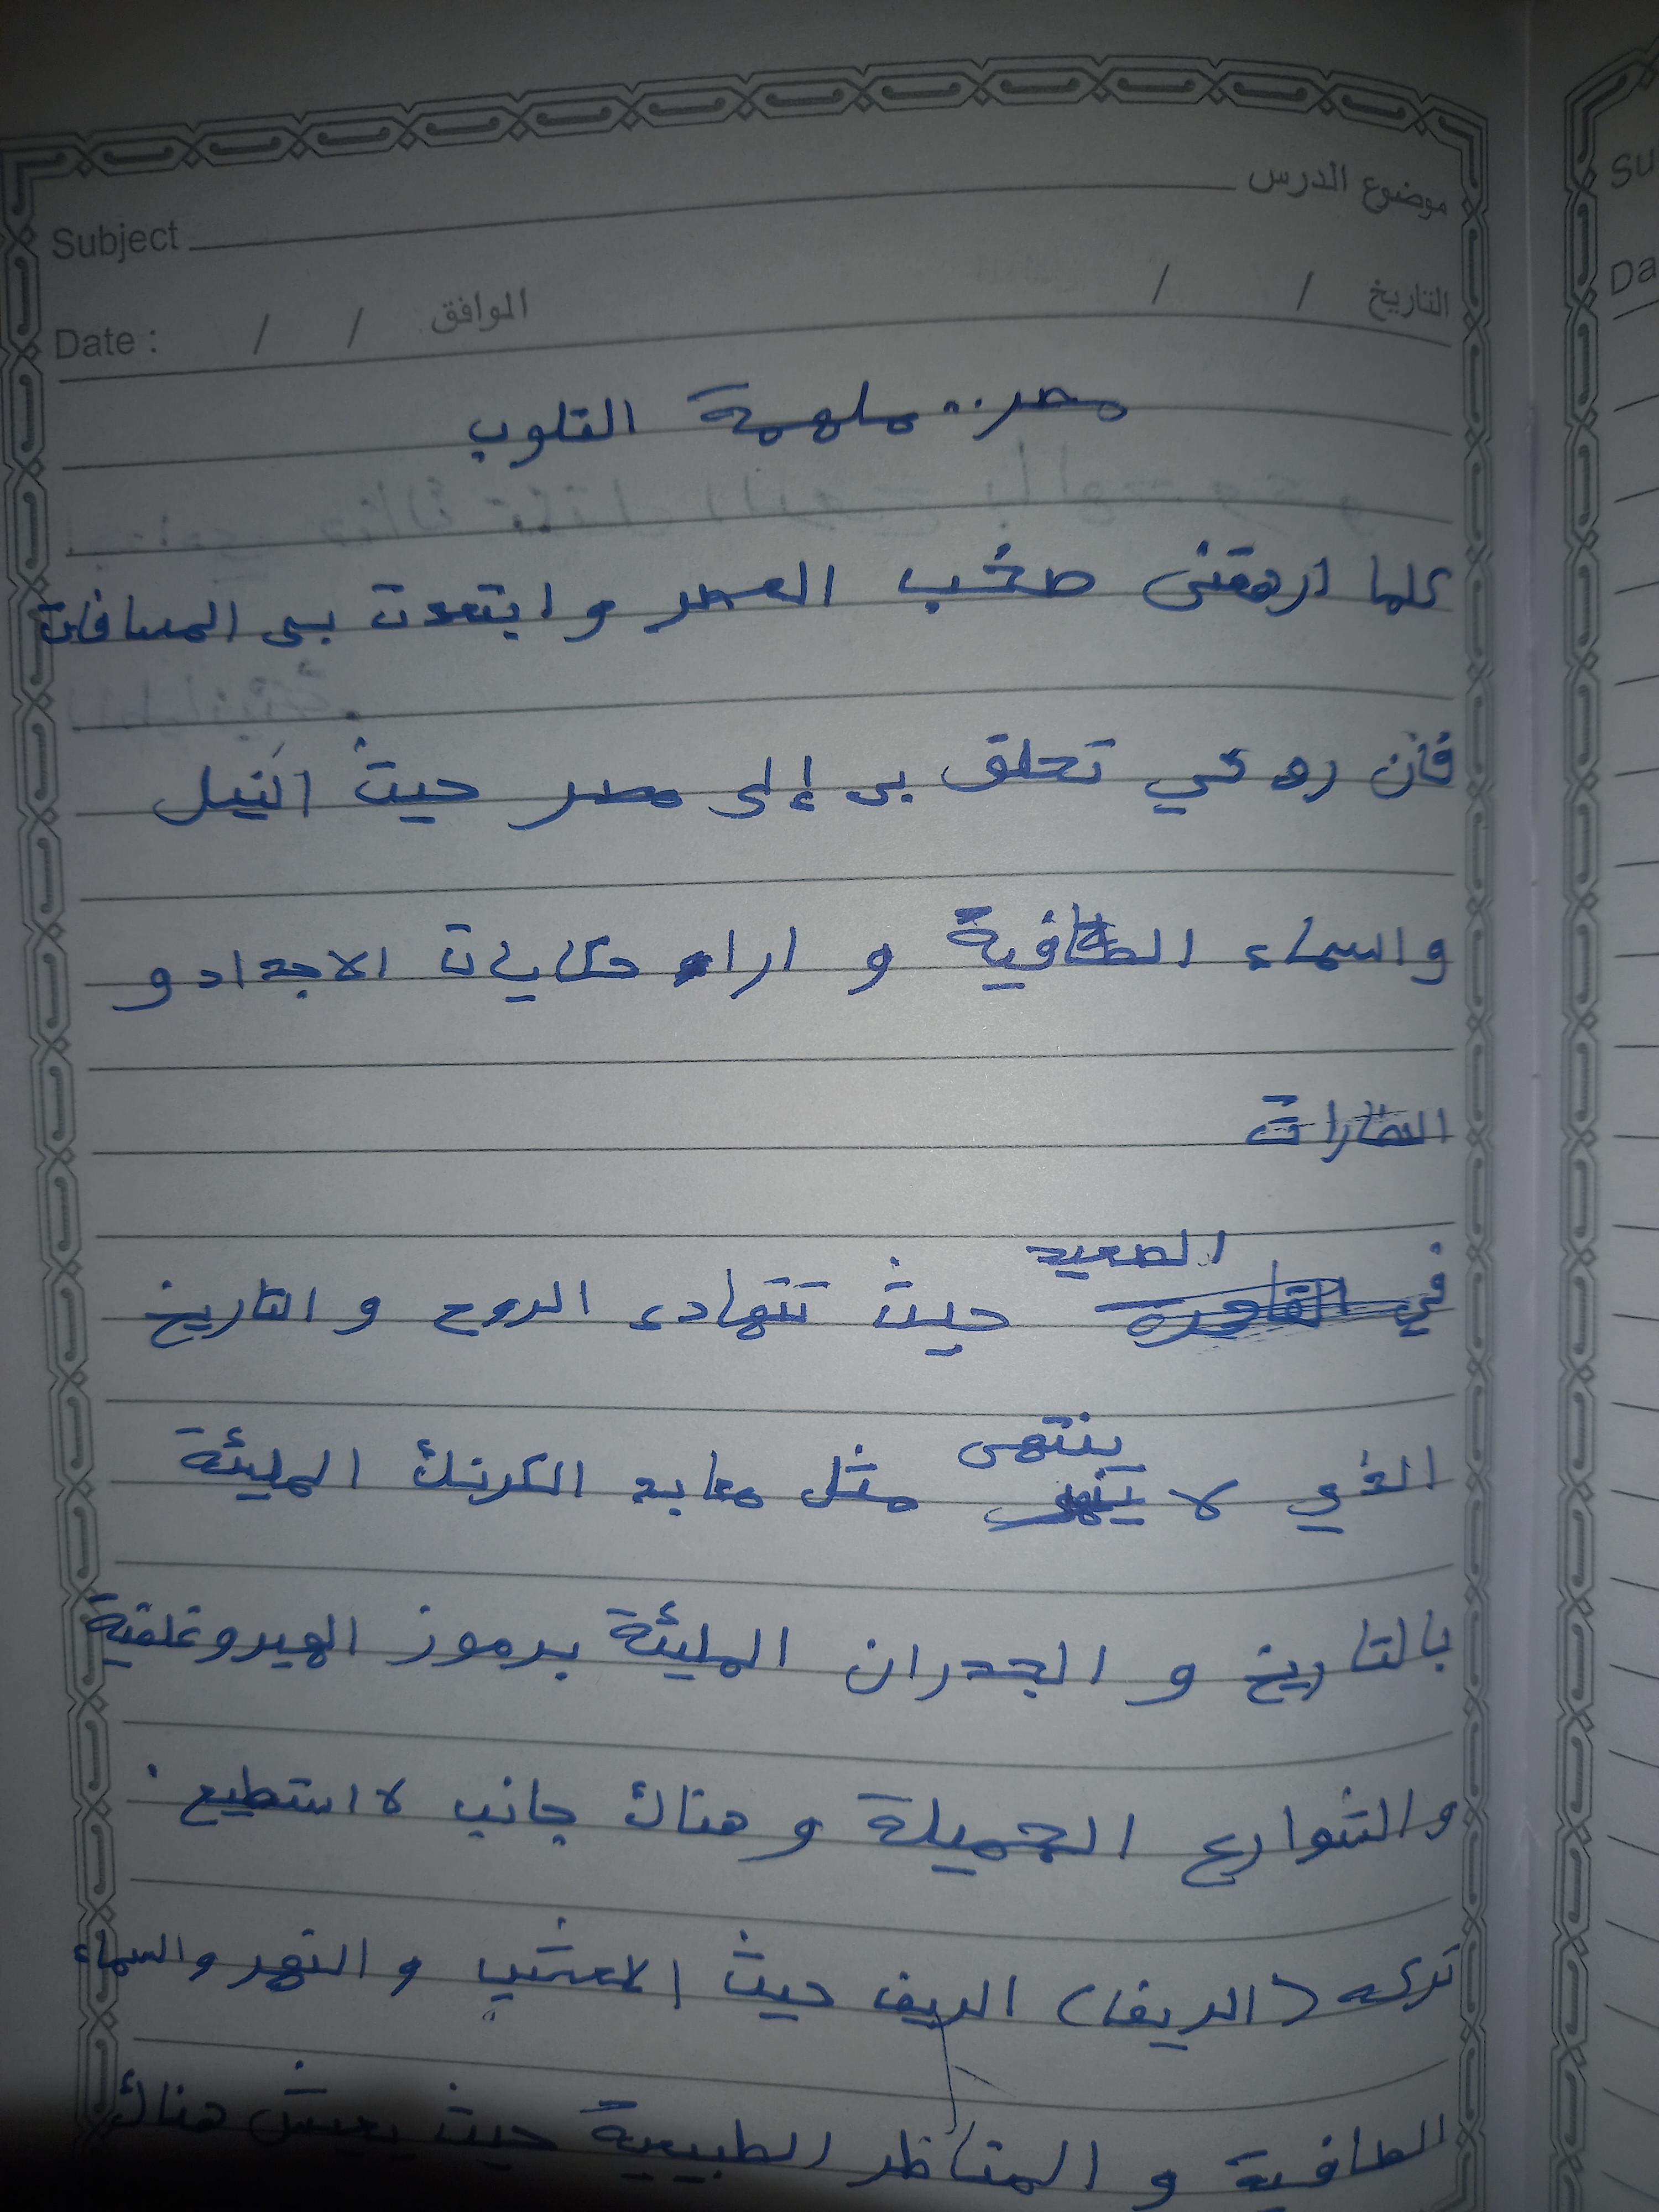 موضوع الدرس
Subject
التاريخ / / الموافق / / Date :
مصر.. ملهمة القلوب
كلما ارهقنى صخب العصر و ابتعدت بى المسافات
فان روحي تحلق بى إلى مصر حيث النيل
والسماء الصافية و اراء حكايات الاجداد و
في الصعيد حيث تتهادى الروح و التاريخ
الذي لا ينتهى مثل معابد الكرنك المليئة
بالتاريخ و الجدران المليئة برموز الهيروغلفية
والشوارع الجميلة و هناك جانب لا استطيع
تركه (الريف) الريف حيث الاعشب و النهر والسماء
الصافية و المناظر الطبيعية حيث يعيش هناك
Su
Da